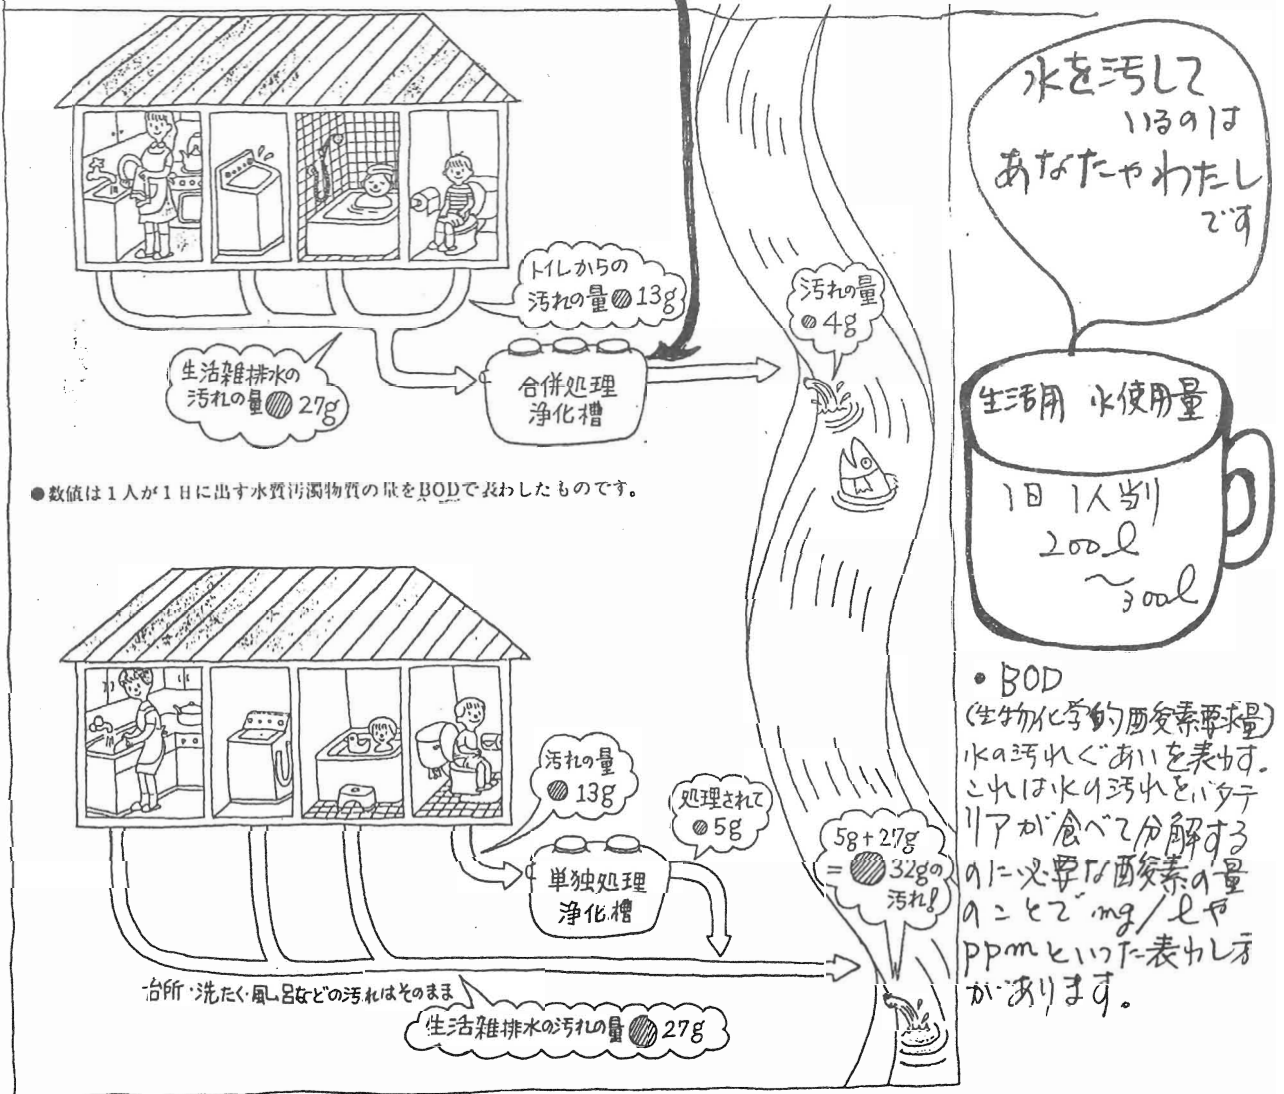 トイレからの
汚れの量 13g
生活雑排水の
汚れの量 27g
合併処理
浄化槽
汚れの量
4g
●数値は1人が1日に出す水質汚濁物質の量をBODで表わしたものです。
汚れの量
13g
処理されて
5g
単独処理
浄化槽
5g+27g
= 32gの
汚れ!
台所・洗たく・風呂などの汚れはそのまま
生活雑排水の汚れの量 27g
水を汚して
いるのは
あなたやわたし
です
生活用 水使用量
1日 1人当り
200ℓ
〜300ℓ
・BOD
(生物化学的酸素要求量)
水の汚れぐあいを表わす。
これは水の汚れをバクテ
リアが食べて分解する
のに必要な酸素の量
のことで mg/ℓや
ppmといった表わし方
があります。